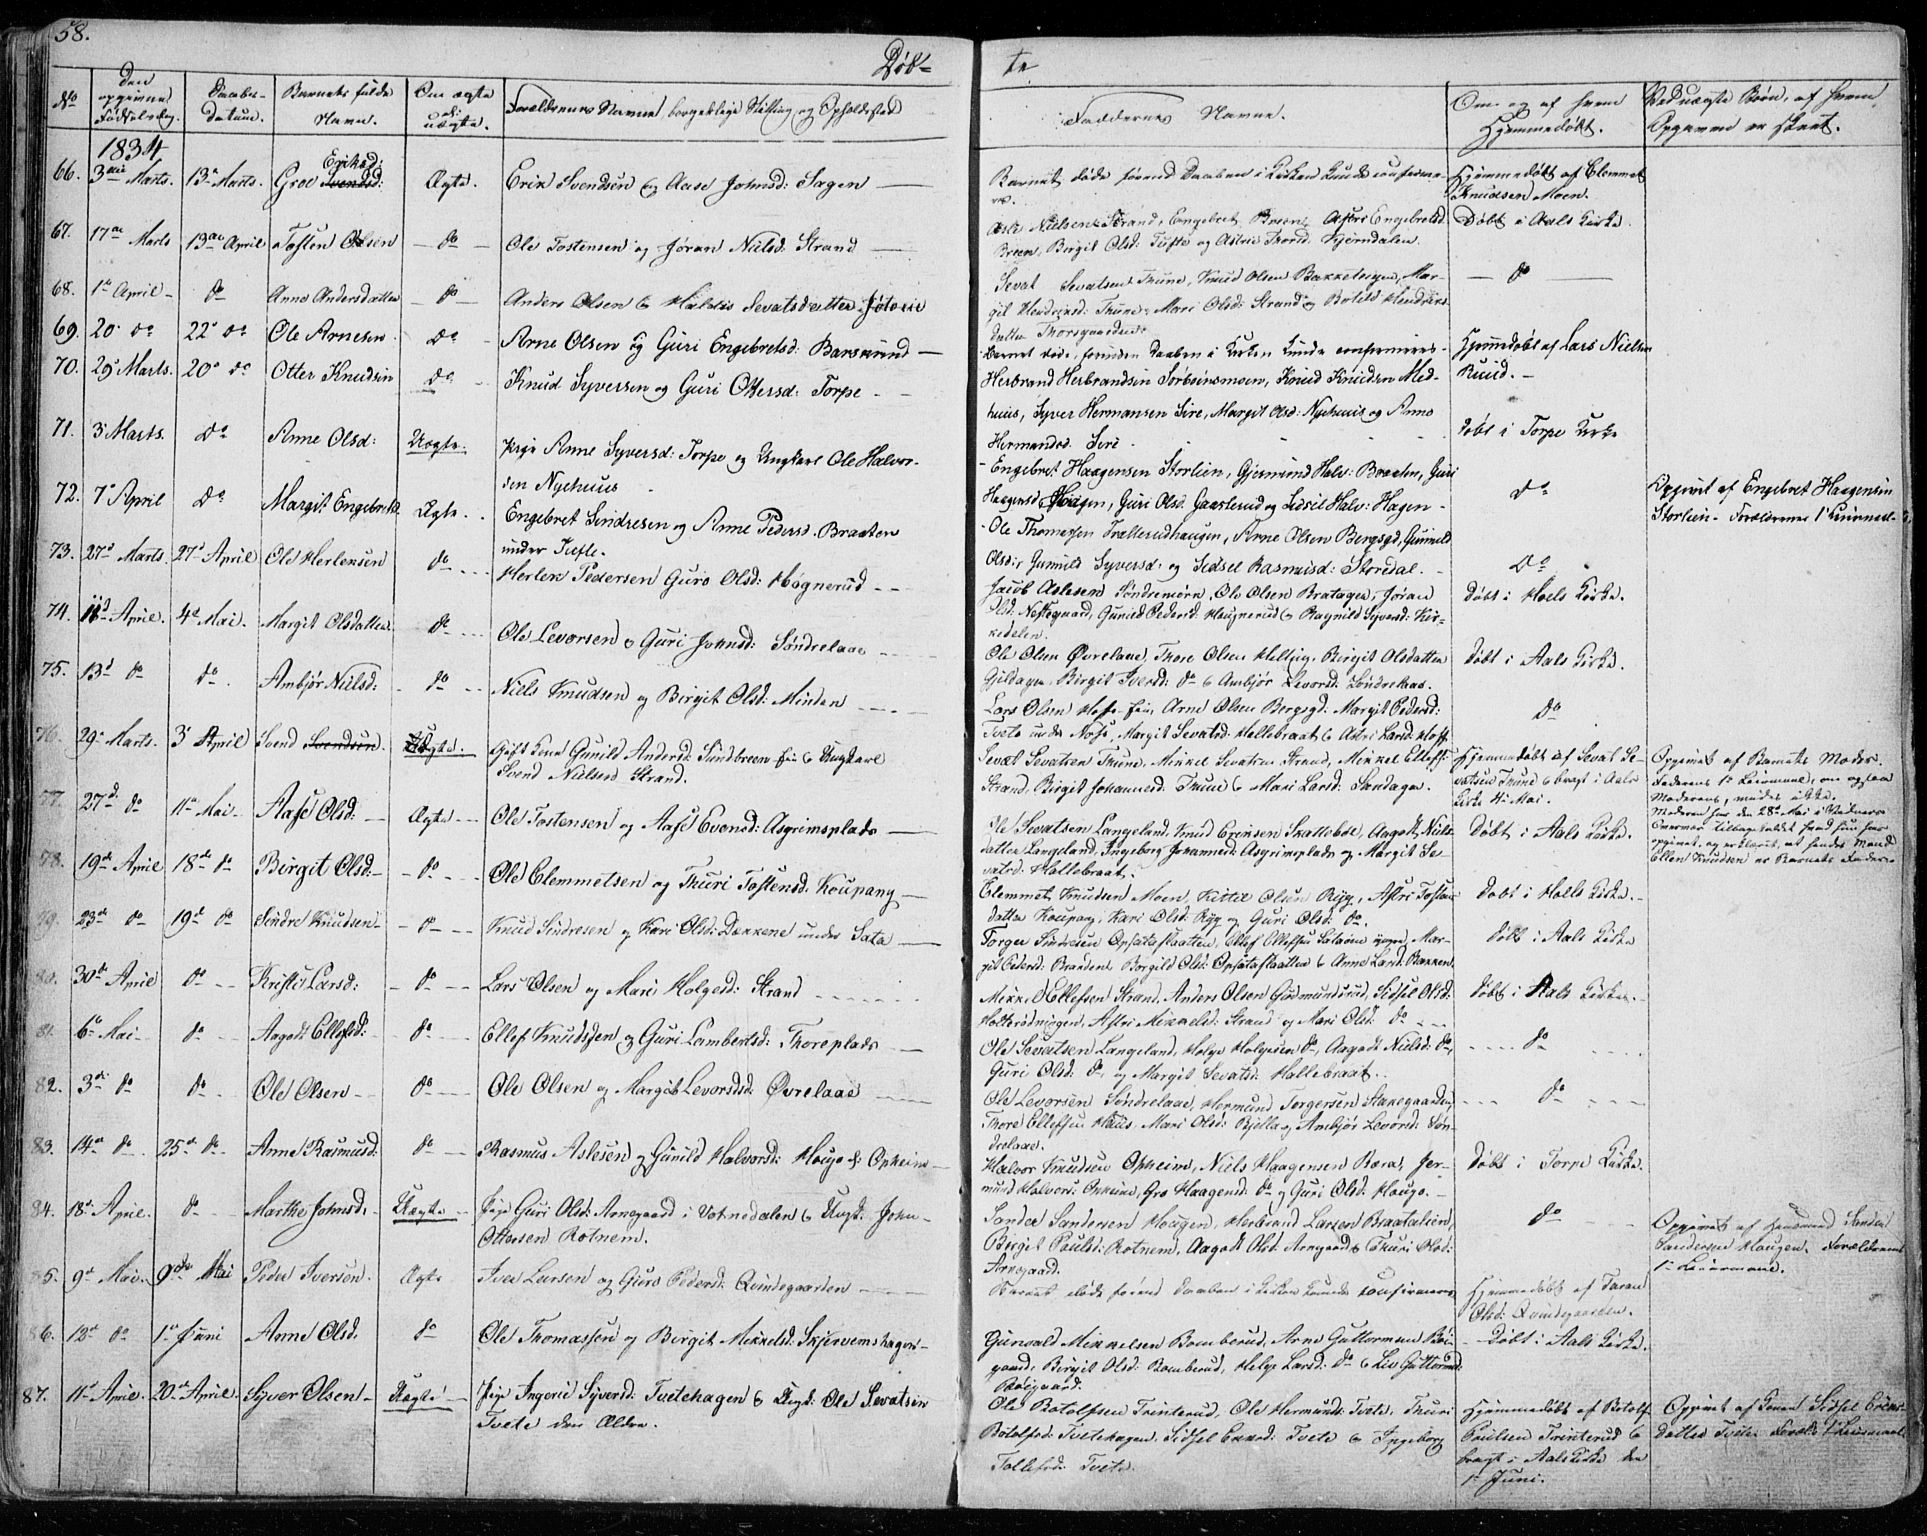 58.
Døb-
te
No
den opgivne Fødselsdag.
Daabs-Datum.
Barnets fulde Navn.
Om ægte el. uægte.
Forældrenes Navne, borgerlige Stilling og Opholdssted
Faddernes Navne.
Om og af hvem Hjemmedøbt.
Ved uægte Børn, af hvem Opgaven er skeet.
1834
66. 3die Marts. 13de Marts. Groe Eriksd: Svendsd: Ægte. Erik Svendsen og Aase Johnsd: Sagen
Barnet døde førend Daaben i Kirken kunde confirme-
res.
Hjemmedøbt af Clemmet
Knudsen Moen.
67. 17de Marts 13de April Tosten Olsen do Ole Tostensen og Jøran Nielsd: Strand
Asle Nielsen Strand, Engebret Breen, Astri Engebretsd.
Breen, Birgit Olsd: Tufte og Astrie Thorsd. Hjerndalen.
Døbt i Aals Kirke.
68. 1ste April do Anne Andersdatter do Anders Olsen & Haldis Sevatsdatter
Sevat Sevatsen Thune, Knud Olsen Bakketeigen, Mar-
git Hendriksd: Thune, Mari Olsd: Strand & Botild Hendriks
datter Thorsgaarden.
do
69. 20 do 22 do Ole Arnesen do Arne Olsen og Guri Engebretsd: Barskrind
Barnet døde, forinden Daaben i Kirken kunde confirmeres
Hjemmedøbt af Lars Nielsen
Ruud.
70. 29 Marts. 20 do Otter Knudsen do Knud Syversen og Guri Ottersd: Torpe
Herbrand Herbrandsen Torbensmoen, Knud Knudsen Med-
huus, Syver Hermansen Sire, Margit Olsd: Nyehuus og Anne
Hermansd. Sire
Døbt i Torpe Kirke
71. 3 Marts. do Anne Olsd: Uægte. Pige Anne Syversd: Torpe og Ungkarl Ole Halvor-
sen Nyehuus
Engebret Haagensen Storlien, Gjermund Halv: Braaten, Guri
Haagensd. Hagen, Guri Olsd. Gaarlerud og Sidsel Halv: Hagen
do
Opgivet af Engebret Haagensen
Storlien. Forældrenes 1ste Leiermaal.
72. 7 April do Margit Engebretsd. Ægte. Engebret Sindresen og Anne Pedersd. Braaten
under Tufte.
Ole Thomassen Trætterudhaugen, Arne Olsen Bergsgd, Gunnild
Olsd:, Gunnild Syversd: og Sidsel Rasmusd: Storedal.
do
73. 27de Marts. 27de April Ole Herlensen do Herlek Pedersen Guro Olsd: Høgnerud
Jacob Aslesen Søndremoen, Ole Olsen Bratager, Jøran
Olsd: Næssegaard, Gunild Pedersd: Haugnerud & Ragnild Syversd: Kir-
kedelen.
Døbt i Hoels Kirke.
74. 11te April. 4de Mai. Margit Olsdatter do Ole Levorsen & Guri Johnsd: Søndrelaae
Ole Olsen Øvrelaae, Thore Olsen Helling, Birgit Olsdatter
Gildagen, Birgit Iversd: do & Ambjør Levorsd: Søndrelaae.
Døbt i Aals Kirke.
75. 13de do do Ambjør Nielsd: do Niels Knudsen og Birgit Olsd: Minden
Lars Olsen Hoff, Arne Olsen Bergsgd: Margit Pedersd:
Tveto under Noss, Margit Sevatsd: Hallebraat & Astri Larsd: Hoff.
do
76. 29de Marts. 3de April Svend Svendsen. Uægte. Gift Kone Gunild Andersd: Sundbreen & Ungkarl
Svend Nielsen Strand.
Sevat Sevatsen Thune, Mikkel Sevatsen Strand, Mikkel Ellefs:
Strand, Birgit Johannesd: Thune & Mari Larsd: Sandager.
Hjemmedøbt af Sevat Se-
vatsen Thune & bragt i Aals
Kirke 4de Mai.
Opgivet af Barnets Moder.
Faderens 1ste Leiermaal, om ogsaa
Moderens, vides ikke.
Moderen har den 28de Mai i Vidners
Nærvær tilbagekaldt hvad hun har
opgivet, og erklæret, at hendes Mand
Ellen Knudsen er Barnets Fader.
77. 27de do 11te Mai Aase Olsd: Ægte Ole Tostensen og Aase Evensd: Asgrimsplads
Ole Sevatsen Langeland, Knud Eriksen Skattebøl, Aagodt Niels-
datter Langeland, Ingeborg Johannesd: Asgrimsplads og Margit Se-
vatsd: Hallebraat.
Døbt i Aals Kirke.
78. 19de April 18de do Birgit Olsd: do Ole Clemmetsen og Thuri Tostensd: Koupang
Clemmet Knudsen Moen, Kittil Olsen Ryg, Astri Tosten
datter Koupang, Kari Olsd: Ryg og Guri Olsd: do.
Døbt i Holls Kirke.
79. 23de do 19de do Sindre Knudsen do Knud Sindresen og Kari Olsd: Dækkene under Sata
Torger Sindresen Opsataslaatten, Ellef Ellefsen Sataøen, Mar-
git Pedersd: Branden, Borgild Olsd: Opsataslaatten & Anne Larsd: Bakken.
Døbt i Aals Kirke
80. 30te April do Kristi Larsd: do Lars Olsen og Mari Holgesd: Strand
Mikkel Ellefsen Strand, Anders Olsen Gudmundsrud, Sidsel Olsd:
Holterødningen, Astri Mikkelsd: Strand og Mari Olsd: do
Døbt i Aals Kirke.
81. 6te Mai do Aagodt Ellefsd: do Ellef Knudssen og Guri Lambertsd: Thoreplads
Ole Sevatsen Langeland, Helge Holgesen do, Aagodt Nielsd: do,
Guri Olsd: do, og Margit Sevatsd: Hallebraat.
do
82. 3de do do Ole Olsen do Ole Olsen og Margit Levorsdsd: Øvrelaae
Ole Levorsen Søndrelaae, Hermund Torgersen Stakegaarden,
Thore Ellefsen Huus, Mari Olsd: Bjella og Ambjør Levorsd: Søn-
drelaae.
do
83. 14de do 25de do Anne Rasmusd: do Rasmus Aslesen og Gunild Halvorsd: Houge f: Opheim
Halvor Knudsen Opheim, Niels Haagensen Bæra, Jer-
mund Halvors: Opheim, Gro Haagensd: do og Guri Olsd: Houge.
Døbt i Torpe Kirke.
84. 18de April. do Marthe Johnsd. Uægte Pige Guri Olsd: Arnegaard i Votnedalen & Ungk: John
Ottersen Rotnem.
Sander Sandersen Hougen, Herbrand Larsen Braatalien,
Birgit Paulsd: Rotnem, Aagodt Olsd. Arnegaard & Thuri Olsd:
Arnegaard.
do
Opgivet af Husmand Sander
Sandersen Haugen. Forældrenes
1ste Leiermaal.
85. 9de Mai. 9de Mai Peder Iversen. Ægte Iver Larsen og Guro Pedersd: Qvindegaarden
Barnet døde førend Daaben i Kirken kunde confirmeres
Hjemmedøbt af Jøran
Olsd: Qvindegaarden.
86. 13de do 1ste Juni Anne Olsd: do Ole Thomassen og Birgit Mikkelsd: Skjervemshagen
Gunvald Mikkelsen Bomberud, Arne Guttormsen Bøi-
gaard, Birgit Olsd: Bomberud, Helge Larsd: do & Liv Guttormsd:
Bøigaard.
Døbt i Aals Kirke.
87. 11te April. 20de April. Syver Olsen Uægte Pige Ingerie Syversd: Tvetehagen & Ungk: Ole Sevatsen
Tvete den Ældre.
Ole Botolfsen Trinterud, Ole Hermunds: Tvete, Thuri
Botolfsd: Tvetehagen, Sidsel Eriksd: Tvete & Ingeborg
Tollefsd: Tvete.
Hjemmedøbt af Botolf
Paulsen Trinterud &
bragt i Aals Kirke den
1ste Juni.
Opgivet af Konen Sidsel Eriks-
datter Tvete. Foræld: 1ste Leiermaal.